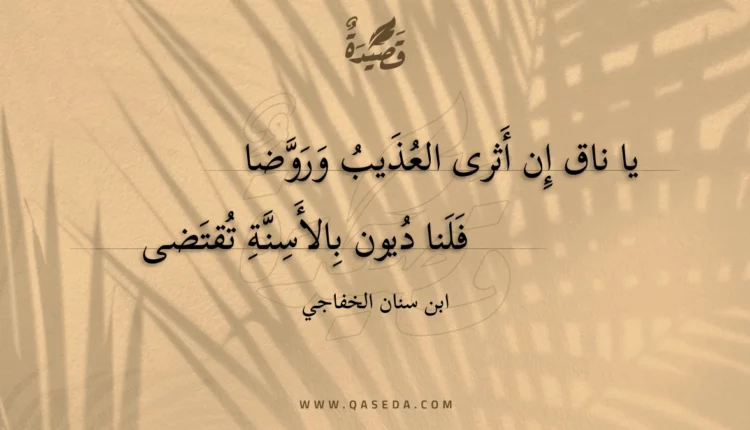 قَصِيْدَةٌ
يا ناق إِن أَثرى العُذَيبُ وَرَوَّضا
فَلَنا دُيون بِالأَسِنَّةِ تُقتَضى
ابن سنان الخفاجي
WWW.QASEDA.COM